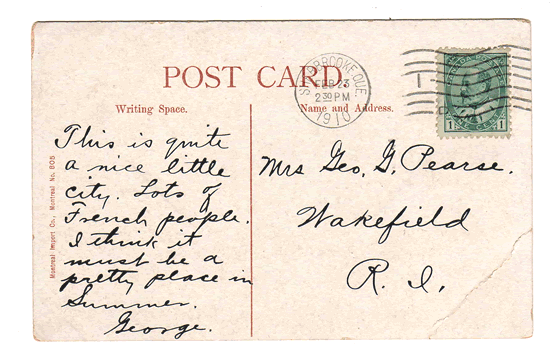 POST CARD.
SHERBROOKE, QUE.
FEB 23
2 30 PM
1910
Writing Space.
Name and Address.
1 1
This is quite
a nice little
city. Lots of
French people.
I think it
must be a
pretty place in
Summer.
George.
Montreal Import Co., Montreal No. 805
Mrs Geo, G, Pearse.
Wakefield
R. I.